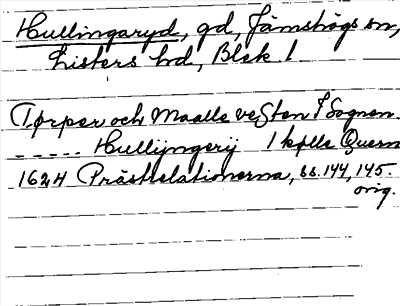 Hullingaryd, gd, Jämshögs sn,
Listers hd, Blek l
Tørper och Maalle vesten I Sognen.
----- Hullijngerÿ 1 kølle Quern
1624 Prästrelationerna, ss. 144, 145.
orig.